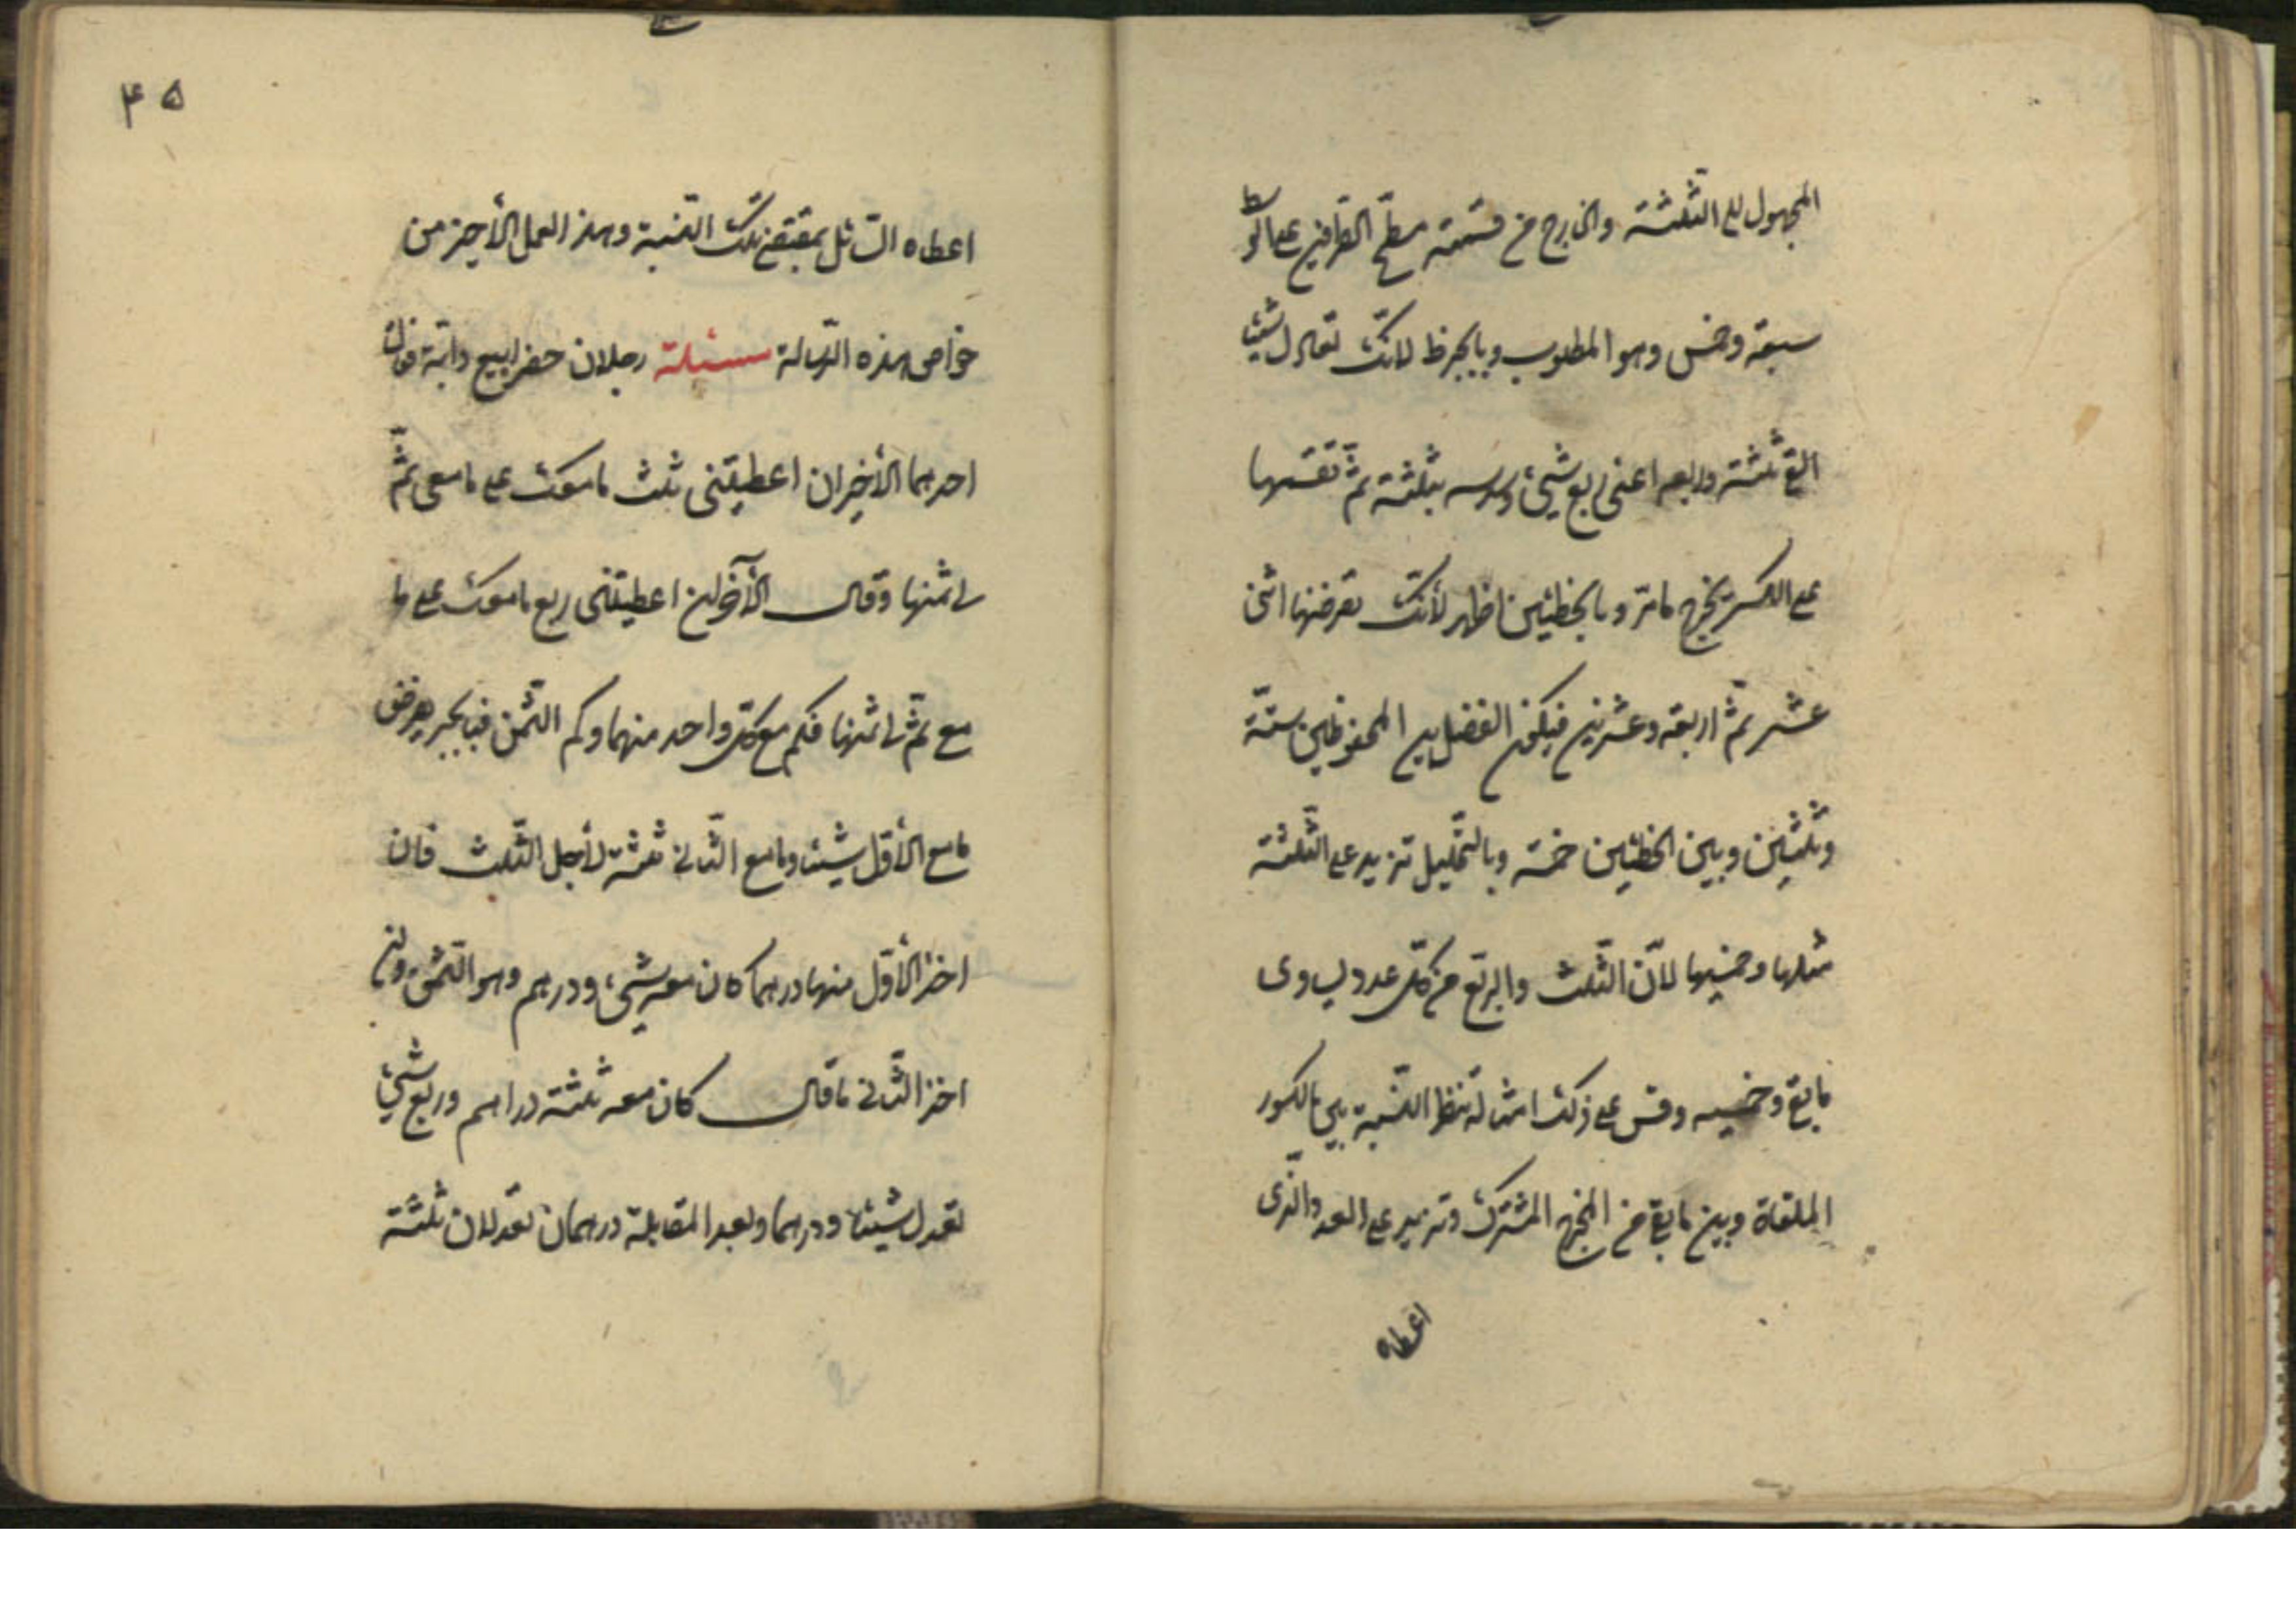 المجهول الى الثلثة والخارج من قسمة مسطح الطرفين على الوسط
سبعة وخمس وهو المطلوب وبالجبر ظ لانك تعادل شيئا
القى ثلثه وربعه اعنى ربع شيء وسدسه بثلثة ثم تقسمها
على الكسر يخرج مامر وبالخطئين اظهر لأنك تفرضها اثنى
عشر ثم اربعة وعشرين فيكون الفضل بين المحفوظين ستة
وثلثين وبين الخطئين خمسة وبالتحليل تزيد على الثلثة
مثلها وخمسيها لان الثلث والربع من كل عدد يساوى
مابقى وخمسيه وقس على ذلك امثاله تنظر النسبة بين الكسور
الملقاة وبين مابقى من المخرج المشترك وتزيد على العدد الذى
اعطاه
۴۵
اعطاه السائل بمقتضى تلك النسبة وهذا العمل الأخير من
خواص هذه الرسالة مسئلة رجلان حضرا بيع دابة فقال
احدهما للأخر ان اعطيتنى ثلث مامعك على مامعى تم
لى ثمنها وقال الآخر ان اعطيتنى ربع مامعك على ما
مع تم لى ثمنها فكم مع كل واحد منهما وكم الثمن فبالجبر يفرض
مامع الأول شيئا ومامع الثانى ثلثة لأجل الثلث فان
اخذ الأول منها درهما كان معه شيء ودرهم وهو الثمن وان
اخذ الثانى ماقال كان معه ثلثة دراهم وربع شيء
تعدل شيئا ودرهما وبعد المقابلة درهمان تعدلان ثلثة